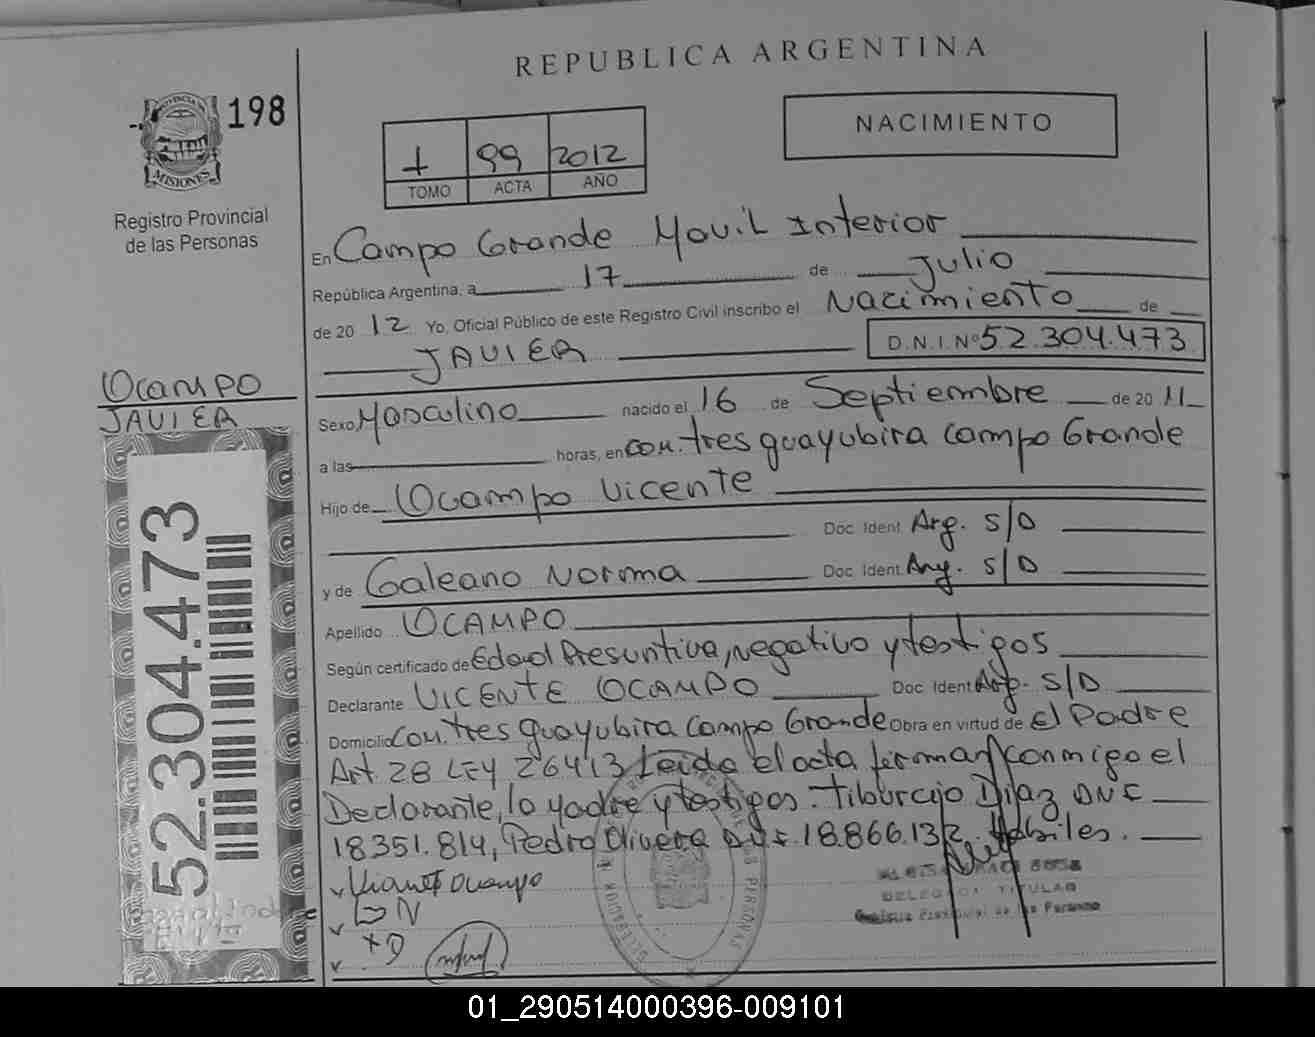 REPUBLICA ARGENTINA
198
MISIONES
Registro Provincial
de las Personas
1 99 2012
TOMO ACTA AÑO
NACIMIENTO
En Campo Grande Movil Interior
República Argentina, a 17 de Julio
de 20 12 Yo, Oficial Público de este Registro Civil inscribo el Nacimiento de
JAVIER D.N.I. Nº 52.304.473
Ocampo
JAVIER
Sexo Masculino nacido el 16 de Septiembre de 20 11
a las horas, en com. tres guayubira campo Grande
Hijo de Ocampo Vicente
Doc. Ident. Arg. S/D
y de Galeano Norma Doc. Ident. Arg. S/D
Apellido OCAMPO
Según certificado de Edad Presuntiva, negativo y testigos
Declarante VICENTE OCAMPO Doc. Ident. Arg. S/D
Domicilio com. tres guayubira campo Grande Obra en virtud de el Padre
Art. 28 LEY 26413 Leida el acta firman conmigo el
Declarante, la madre y testigos. Tiburcio Diaz DNI
18351.814, Pedro Olivera DNI 18.866.132. Habiles.
Vicente Ocampo
52.304.473
TITULAR
01_290514000396-009101